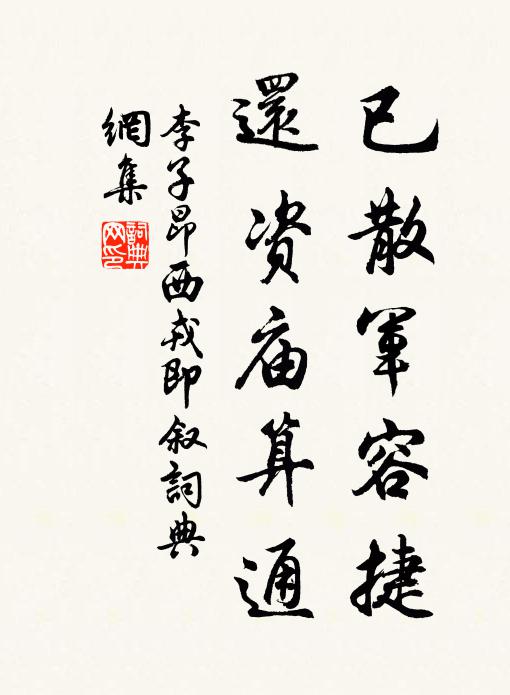 已散軍容捷
還资庙算通
李子昂西戎即叙詞典
網集
詞典
网印